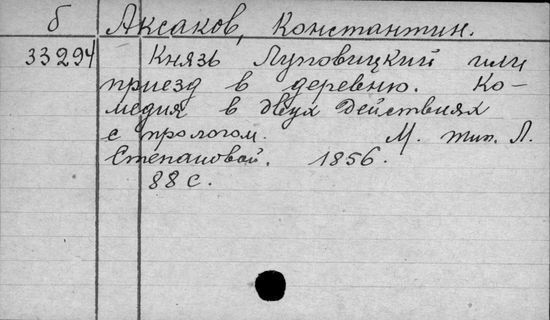 б Аксаков, Константин.
33294 Князь Луповицкий или
приезд в деревню. Ко-
медия в двух действиях
с прологом. М. тип. Л.
Степановой. 1856.
88 с.